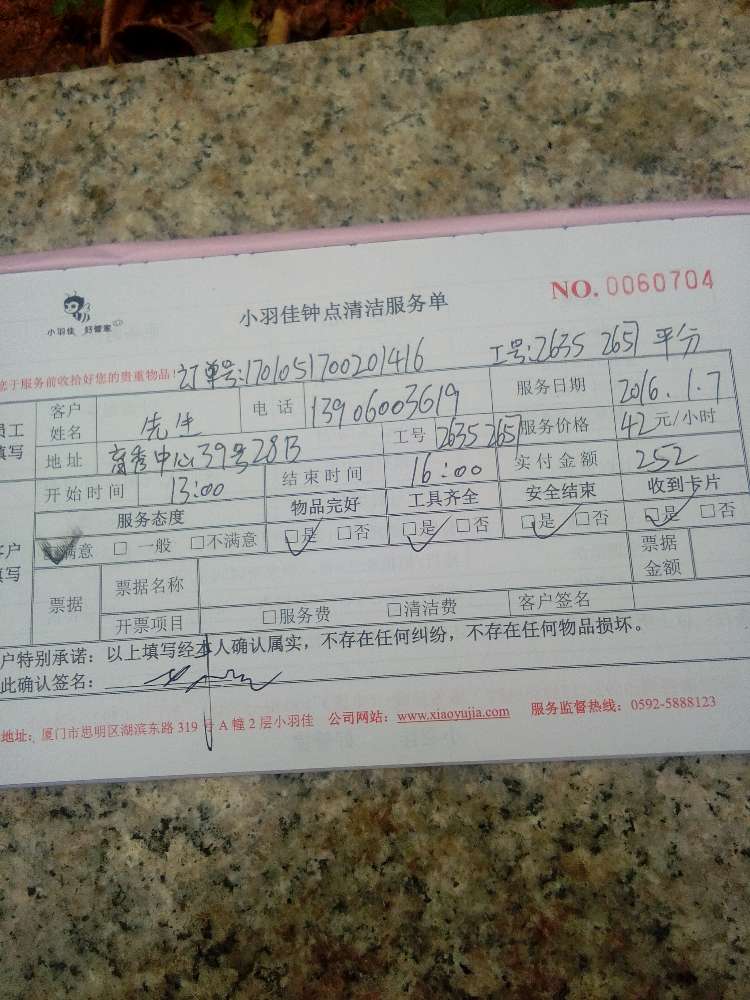 小羽佳 好管家
小羽佳钟点清洁服务单
NO. 0060704
您于服务前收拾好您的贵重物品! 订单号:1701051700201416 工号:2635 2651 平分
员工填写 客户姓名 先生 电话 13906003619 服务日期 2016.1.7
地址 育秀中心39号28B 工号 2635 2651 服务价格 42元/小时
开始时间 13:00 结束时间 16:00 实付金额 252
客户填写 服务态度 物品完好 工具齐全 安全结束 收到卡片
□满意 □ 一般 □不满意 □是 □否 □是 □否 □是 □否 □是 □否
票据 票据名称 票据金额
开票项目 □服务费 □清洁费 客户签名
户特别承诺:以上填写经本人确认属实,不存在任何纠纷,不存在任何物品损坏。
此确认签名:
地址:厦门市思明区湖滨东路 319 号 A 幢 2 层小羽佳 公司网站:www.xiaoyujia.com 服务监督热线:0592-5888123